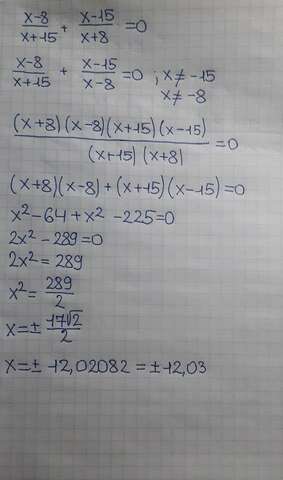 x-8/x+15 + x-15/x+8 = 0
x-8/x+15 + x-15/x-8 = 0 ; x≠-15
x≠-8
(x+8)(x-8)(x+15)(x-15)/(x+15)(x+8) = 0
(x+8)(x-8)+(x+15)(x-15)=0
x²-64+x²-225=0
2x²-289=0
2x²=289
x²=289/2
x=±17√2/2
x=±12,02082=±12,03